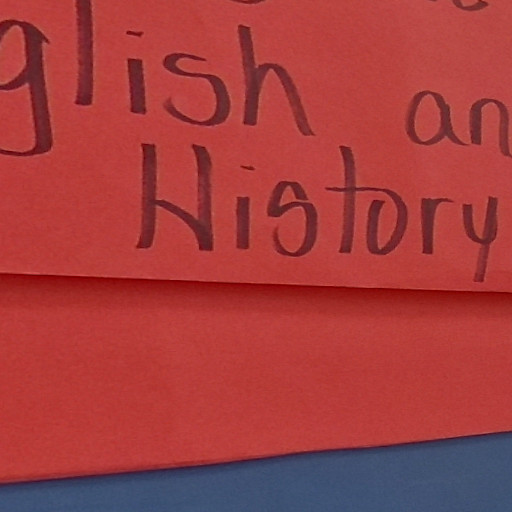 glish an
History